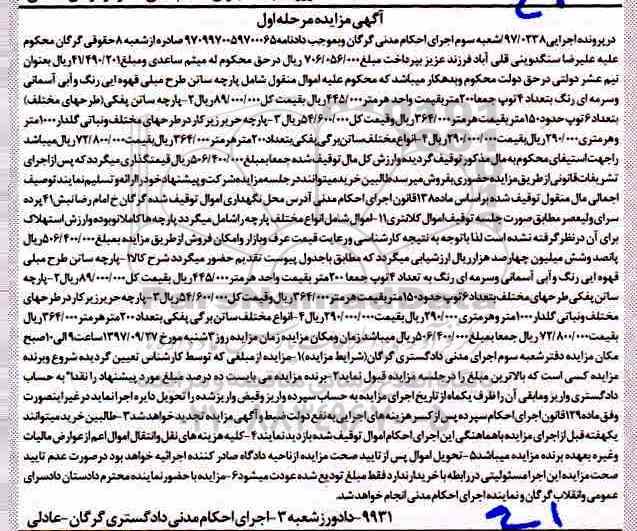 آگهی مزایده مرحله اول
در پرونده اجرایی ۹۷/۰۳۳۸/شعبه سوم اجرای احکام مدنی گرگان و بموجب دادنامه ۹۷۰۹۹۷۰۰۵۹۷۰۰۰۶۵ صادره از شعبه ۸ حقوقی گرگان محکوم
علیه علیرضا سنگدوینی قلی آباد فرزند عزیز بپرداخت مبلغ ۷۰۶/۰۵۶/۰۰۰ ریال در حق محکوم له میثم ساعدی و مبلغ ۴۱/۴۹۰/۲۰۱ ریال بعنوان
نیم عشر دولتی در حق دولت محکوم و بدهکار میباشد که محکوم علیه اموال منقول شامل پارچه ساتن طرح مبلی قهوه ایی رنگ و آبی آسمانی
و سرمه ای رنگ بتعداد ۴ توپ جمعا ۲۰۰ متر بقیمت واحد هر متر ۴۴۵/۰۰۰ ریال بقیمت کل ۸۹/۰۰۰/۰۰۰ ریال ۲- پارچه ساتن پفکی (طرحهای مختلف)
بتعداد ۶ توپ حدود ۱۵۰ متر بقیمت هر متر ۳۶۴/۰۰۰ ریال و قیمت کل ۵۴/۶۰۰/۰۰۰ ریال ۳- پارچه حریر زیر کار در طرحهای مختلف و نباتی گلدار ۱۰۰۰ متر
و هر متری ۲۹۰/۰۰۰ ریال بقیمت ۲۹۰/۰۰۰/۰۰۰ ریال ۴- انواع مختلف ساتن برگی پفکی بتعداد ۲۰۰ متر هر متر ۳۶۴/۰۰۰ ریال بقیمت ۷۲/۸۰۰/۰۰۰ ریال میباشد
را جهت استیفای محکوم به مال مذکور توقیف گردیده و ارزش کل مال توقیف شده جمعا بمبلغ ۵۰۶/۴۰۰/۰۰۰ ریال قیمتگذاری میگردد که پس از اجرای
تشریفات قانونی از طریق مزایده حضوری بفروش میرسد طالبین خرید میتوانند در جلسه مزایده شرکت و پیشنهاد خود را ارائه و تسلیم نمایند توصیف
اجمالی مال منقول توقیف شده بر اساس ماده ۱۳۸ قانون اجرای احکام مدنی آدرس محل نگهداری اموال توقیف شده گرگان خ امام رضا نبش ۴۱ پرده
سرای ولیعصر مطابق صورت جلسه توقیف اموال کلانتری ۱۱- اموال شامل انواع مختلف پارچه را شامل میگردد پارچه ها کاملا نو بوده و ارزش استهلاک
برای آن در نظر گرفته نشده است لذا با توجه به نتیجه کارشناسی و رعایت قیمت عرف و بازار و امکان فروش از طریق مزایده بمبلغ ۵۰۶/۴۰۰/۰۰۰ ریال
پانصد و شش میلیون چهارصد هزار ریال ارزشیابی میگردد که مطابق با جدول پیوست تقدیم حضور میگردد شرح کالا ۱- پارچه ساتن طرح مبلی
قهوه ایی رنگ و آبی آسمانی و سرمه ای رنگ به تعداد ۴ توپ جمعا ۲۰۰ متر بقیمت واحد هر متر ۴۴۵/۰۰۰ ریال بقیمت کل ۸۹/۰۰۰/۰۰۰ ریال ۲- پارچه
ساتن پفکی طرحهای مختلف بتعداد ۶ توپ حدود ۱۵۰ متر بقیمت هر متر ۳۶۴/۰۰۰ ریال و قیمت کل ۵۴/۶۰۰/۰۰۰ ریال ۳- پارچه حریر زیر کار در طرحهای
مختلف و نباتی گلدار ۱۰۰۰ متر و هر متری ۲۹۰/۰۰۰ ریال بقیمت ۲۹۰/۰۰۰/۰۰۰ ریال ۴- انواع مختلف ساتن برگی پفکی بتعداد ۲۰۰ متر هر متر ۳۶۴/۰۰۰ ریال
بقیمت ۷۲/۸۰۰/۰۰۰ ریال جمعا بمبلغ ۵۰۶/۴۰۰/۰۰۰ ریال میباشد زمان و مکان مزایده زمان مزایده روز ۳ شنبه مورخ ۱۳۹۷/۰۹/۲۷ ساعت ۹ الی ۱۰ صبح
مکان مزایده دفتر شعبه سوم اجرای مدنی دادگستری گرگان (شرایط مزایده) ۱- مزایده از مبلغی که توسط کارشناس تعیین گردیده شروع و برنده
مزایده کسی است که بالاترین مبلغ را در جلسه مزایده قبول نماید ۲- برنده مزایده می بایست ده درصد مبلغ مورد پیشنهاد را نقدا" به حساب
دادگستری واریز و مابقی آن را ظرف یکماه از تاریخ اجرای مزایده به حساب سپرده واریز و قبض واریز شده را تحویل دایره اجرا نماید در غیر اینصورت
وفق ماده ۱۲۹ قانون اجرای احکام سپرده پس از کسر هزینه های اجرایی به نفع دولت ضبط و آگهی مزایده تجدید خواهد شد ۳- طالبین خرید میتوانند
یکهفته قبل از اجرای مزایده با هماهنگی این اجرای احکام اموال توقیف شده بازدید نمایند ۴- کلیه هزینه های نقل و انتقال اموال اعم از عوارض مالیات
و غیره بعهده برنده مزایده میباشد ۵- تحویل اموال پس از تایید صحت مزایده از ناحیه دادگاه صادر کننده اجرائیه خواهد بود در صورت عدم تایید
صحت مزایده این اجرا مسئولیتی در رابطه با خریدار ندارد فقط مبلغ تودیع شده عودت میشود ۶- مزایده با حضور نماینده محترم دادستان دادسرای
عمومی و انقلاب گرگان و نماینده اجرای احکام مدنی انجام خواهد شد.
۹۹۳۱- دادورز شعبه ۳- اجرای احکام مدنی دادگستری گرگان - عادلی